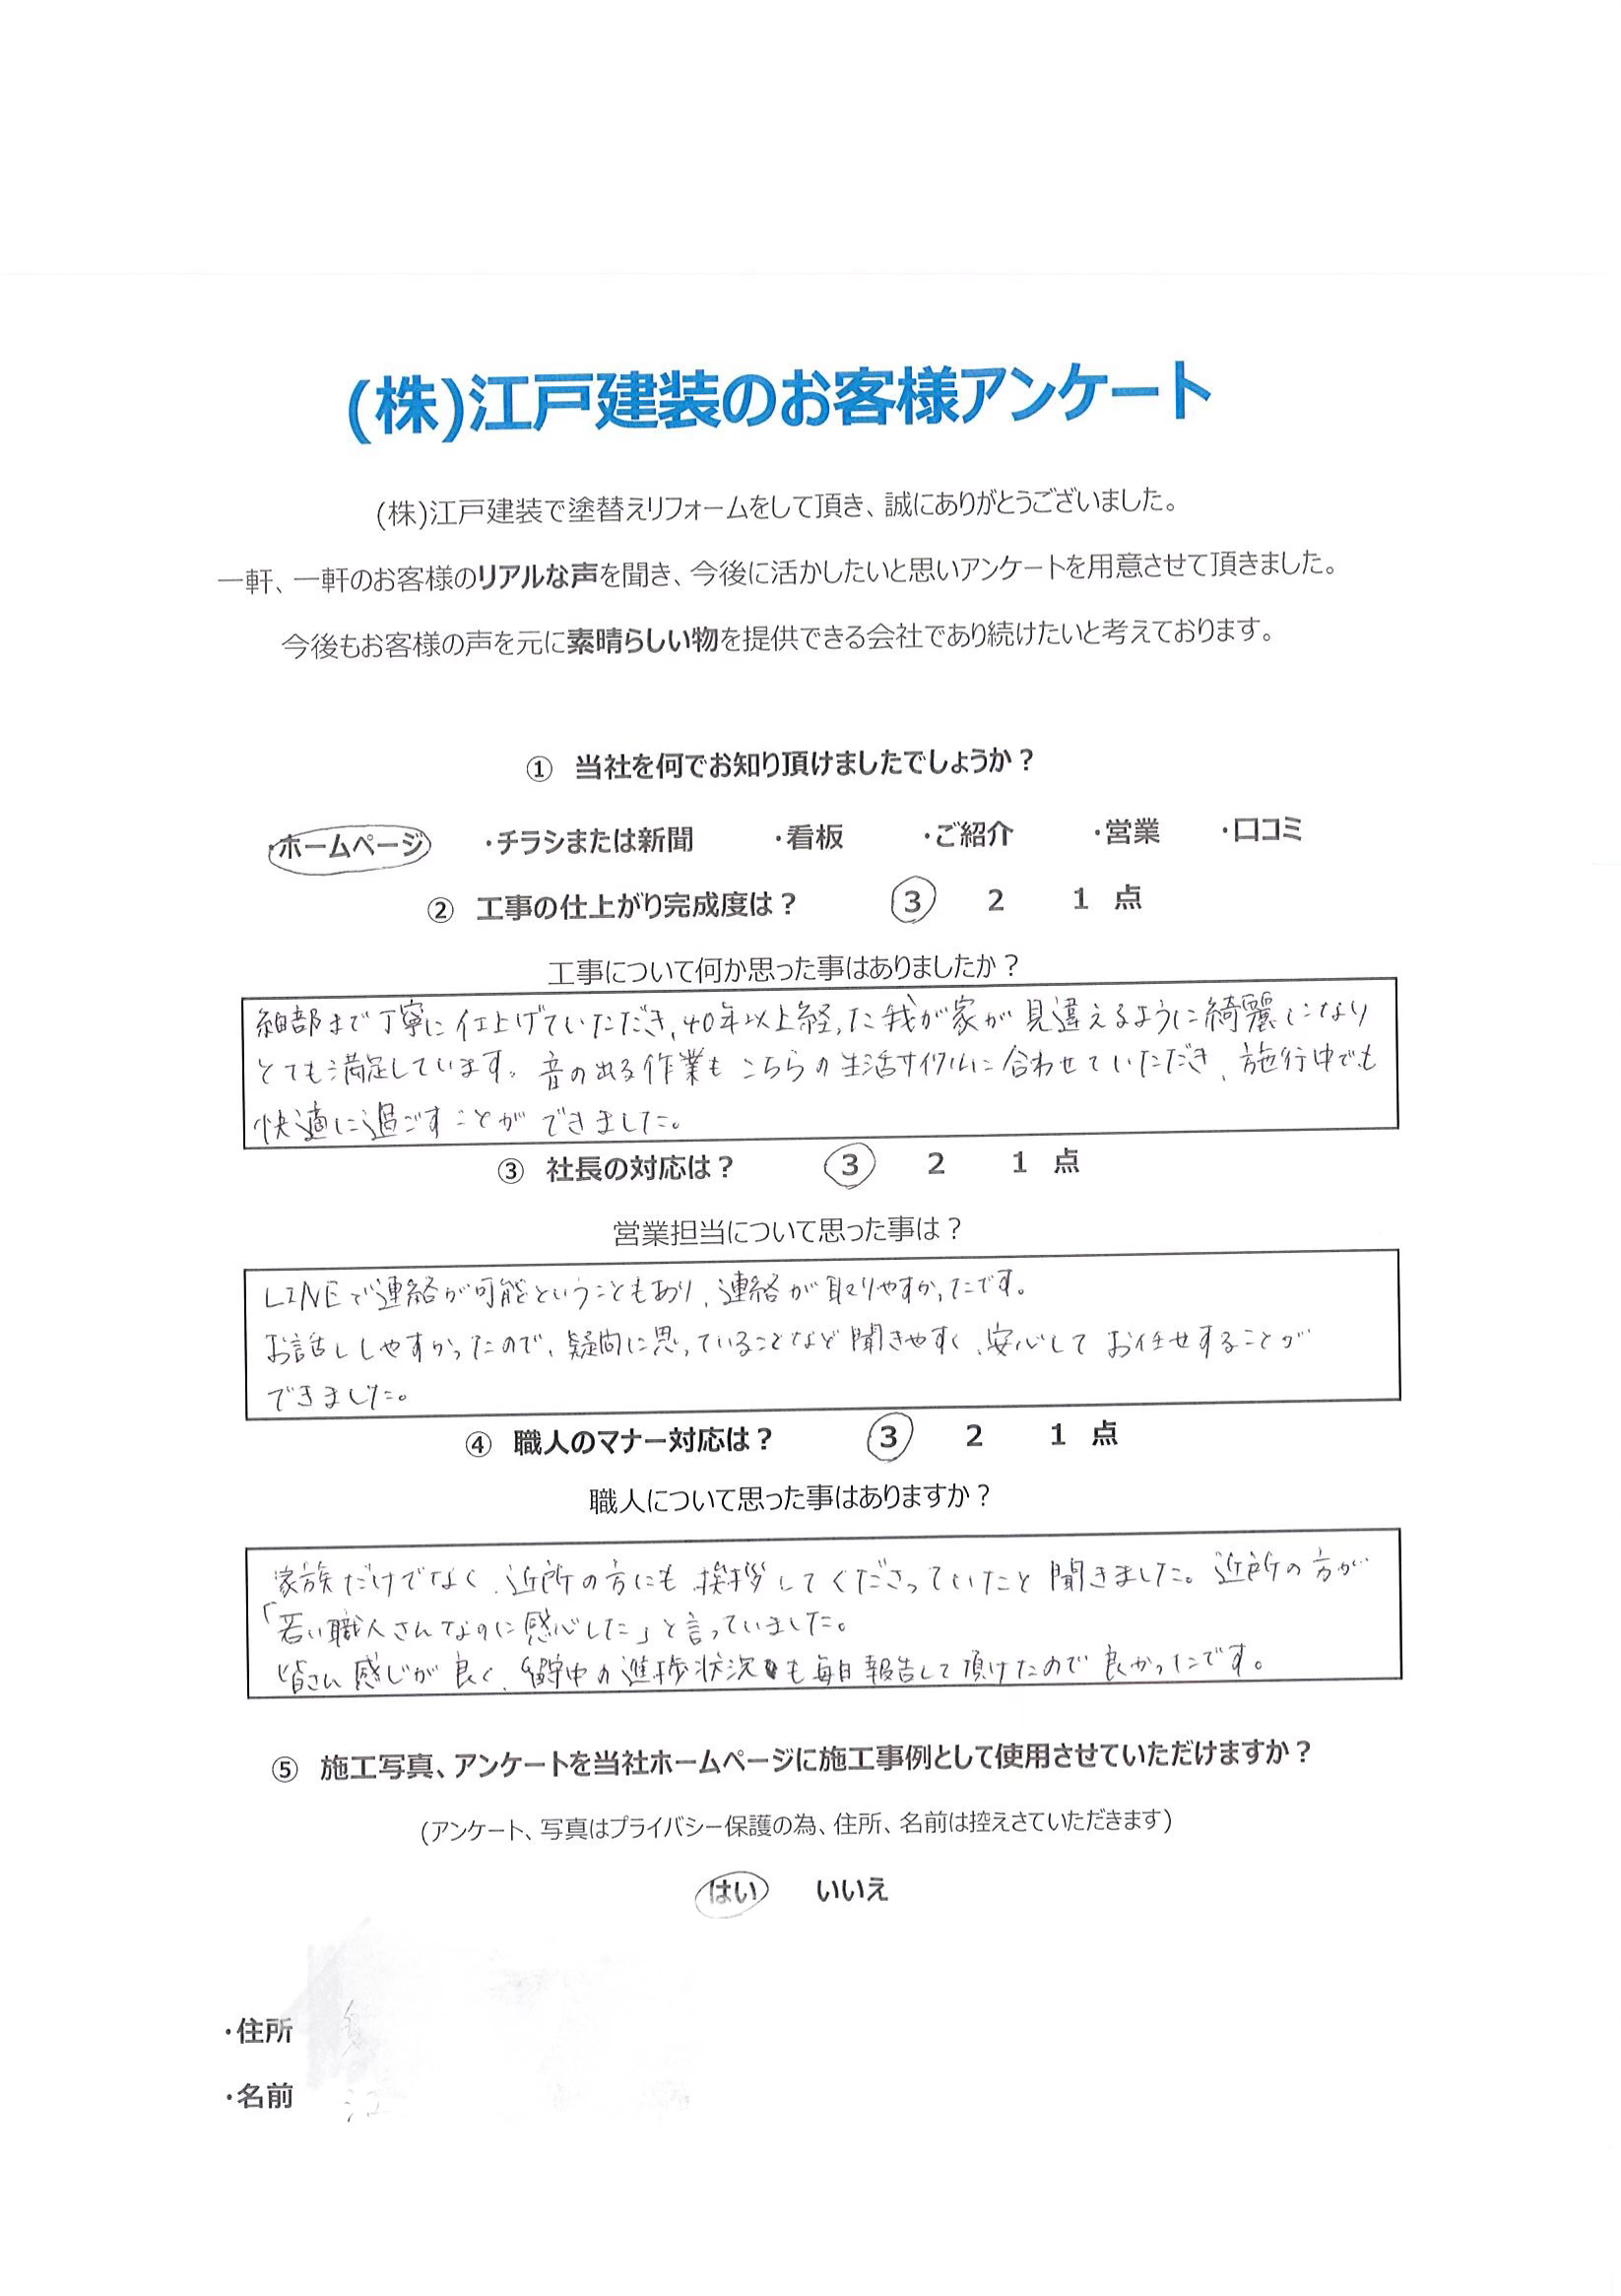 (株)江戸建装のお客様アンケート
(株)江戸建装で塗替えリフォームをして頂き、誠にありがとうございました。
一軒、一軒のお客様のリアルな声を聞き、今後に活かしたいと思いアンケートを用意させて頂きました。
今後もお客様の声を元に素晴らしい物を提供できる会社であり続けたいと考えております。
① 当社を何でお知り頂けましたでしょうか？
・ホームページ ・チラシまたは新聞 ・看板 ・ご紹介 ・営業 ・口コミ
② 工事の仕上がり完成度は？ 3 2 1 点
工事について何か思った事はありましたか？
細部まで丁寧に仕上げていただき、40年以上経った我が家が見違えるように綺麗になり
とても満足しています。音の出る作業もこちらの生活サイクルに合わせていただき、施行中でも
快適に過ごすことができました。
③ 社長の対応は？ 3 2 1 点
営業担当について思った事は？
LINEで連絡が可能ということもあり、連絡が取りやすかったです。
お話ししやすかったので、疑問に思っていることなど聞きやすく、安心してお任せすることが
できました。
④ 職人のマナー対応は？ 3 2 1 点
職人について思った事はありますか？
家族だけでなく、近所の方にも挨拶してくださっていたと聞きました。近所の方が
「若い職人さんなのに感心した」と言っていました。
皆さん感じが良く、留守中の進捗状況も毎日報告して頂けたので良かったです。
⑤ 施工写真、アンケートを当社ホームページに施工事例として使用させていただけますか？
(アンケート、写真はプライバシー保護の為、住所、名前は控えさていただきます)
はい いいえ
・住所
・名前 江